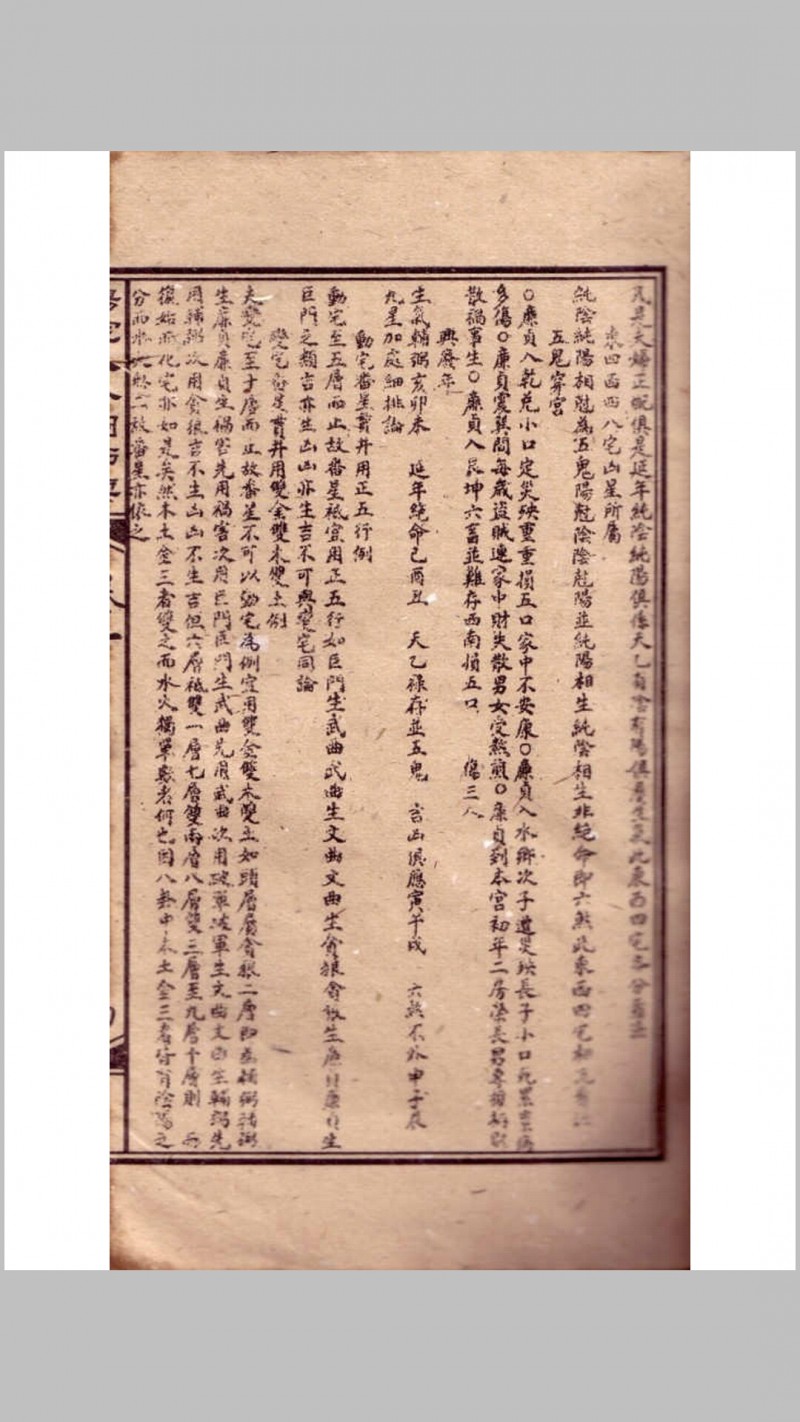 凡是夫婦正配俱是延年純陰純陽俱係天乙有陰有陽俱屬生氣此東西四宅各分看法
東四西四八宅凶星所屬
純陰純陽相尅為五鬼陽尅陰陰尅陽並純陽相生純陰相生非絕命即六煞此東西四宅相
五鬼穿宮
○廉貞入乾兌小口定災殃重重損五口家中不安康○廉貞入水鄉次子遭災殃長子小口死
多傷○廉貞震巽間每歲盜賊連家中財失散男女受熬煎○廉貞到本宮初年二房榮長男
散禍事生○廉貞入艮坤六畜並難存西南損五口 傷三人
興廢年
生氣輔弼亥卯未 延年絕命巳酉丑 天乙祿存並五鬼 吉凶俱應寅午戌 六煞不外申子辰
九星加處細推論
動宅番星貫井用正五行例
動宅至五層而止故番星祗宜用正五行如巨門生武曲武曲生文曲文曲生貪狼貪狼生廉貞廉貞生
巨門之類吉亦生凶凶亦生吉不可與變宅同論
變宅番星貫井用雙金雙木雙土例
夫變宅至十層而止故番星不可以動宅為例宜用雙金雙木雙土如頭層屬貪狼二層即為輔弼輔弼
生廉貞廉貞生禍害先用禍害次用巨門巨門生武曲先用武曲次用破軍破軍生文曲文曲生輔弼先
用輔弼次用貪狼吉不生凶凶不生吉但六層祗雙一層七層雙兩層八層雙三層至九層十層則
復始而化宅亦如是矣然木土金三者雙之而水火獨單載者何也因八卦中木土金三者皆有陰陽之
分而水火 故番星亦依之